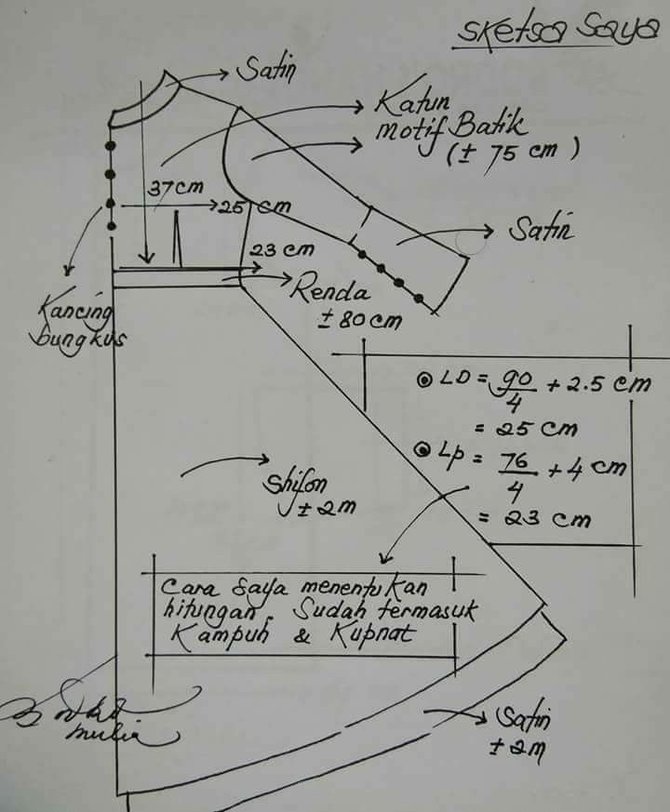 Sketsa Saya
Satin
Katun
motif Batik
(± 75 cm)
37cm
25 cm
Satin
23 cm
Renda
± 80cm
Kancing
bungkus
LD = 90/4 + 2.5 cm
= 25 cm
Lp = 76/4 + 4 cm
= 23 cm
Shifon
± 2m
Cara Saya menentukan
hitungan, Sudah termasuk
Kampuh & Kupnat
mulia
Satin
± 2m